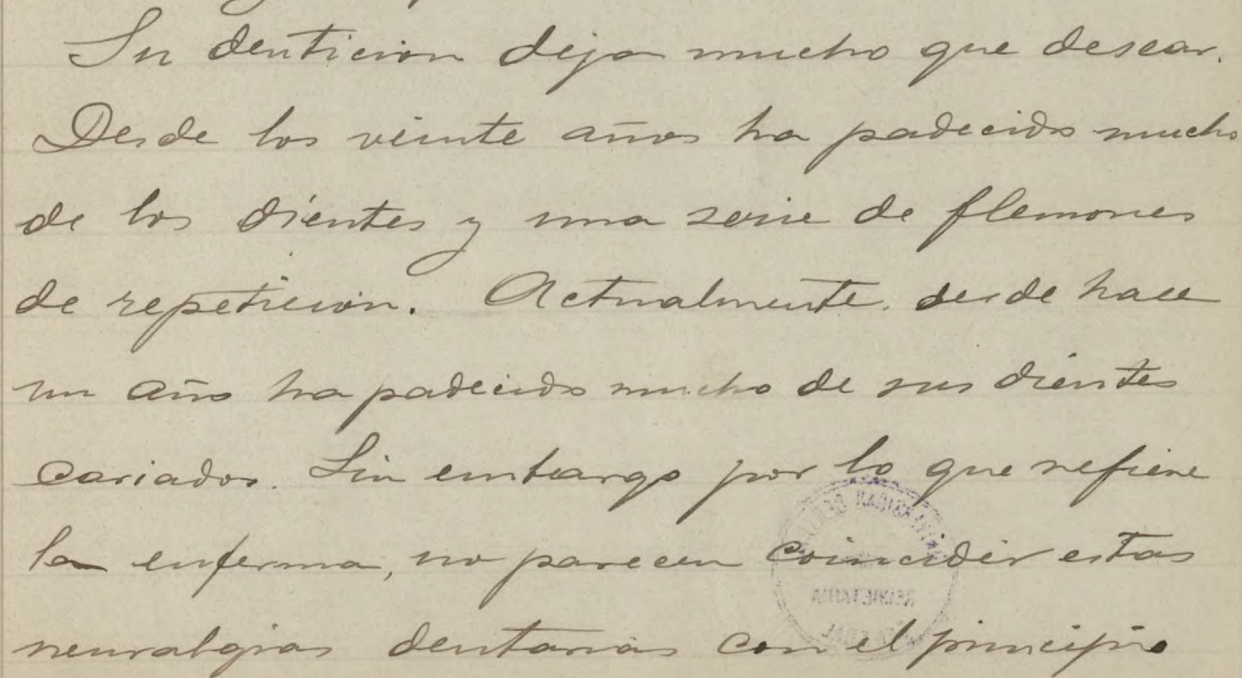 Su denticion deja mucho que desear.
Desde los veinte años ha padecido mucho
de los dientes y una serie de flemones
de repeticion. Actualmente, desde hace
un año ha padecido mucho de sus dientes
cariados. Sin embargo por lo que refiere
la enferma, no parecen coincidir estas
neuralgias dentarias con el principio